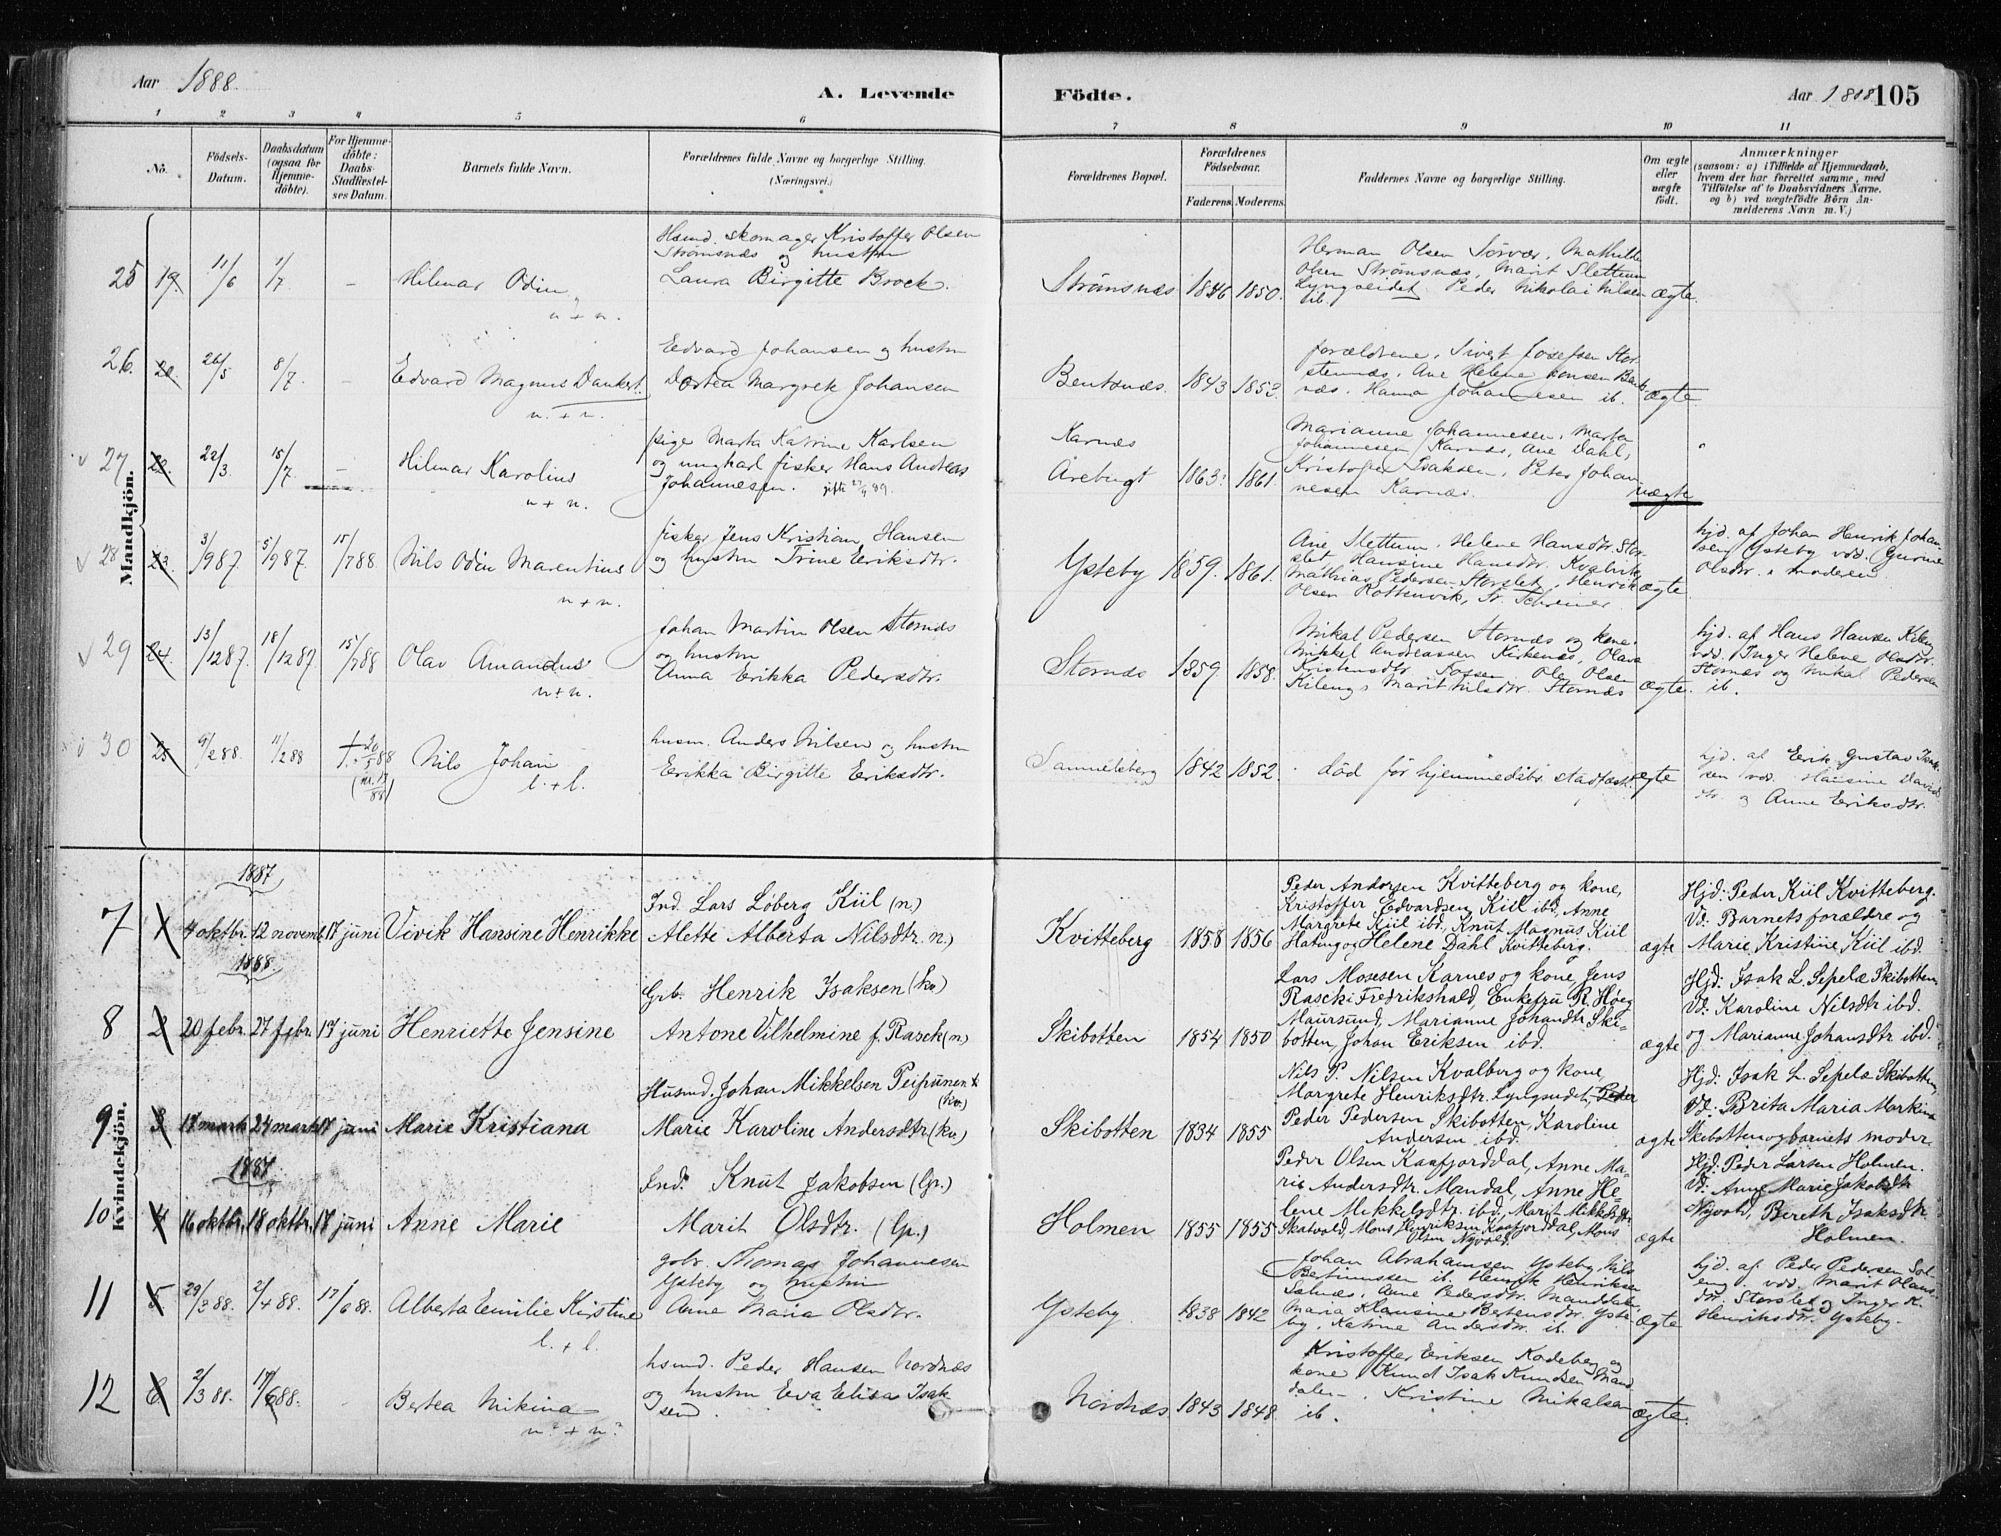 Aar 1888.
A. Levende
Födte.
Aar 1888
105
1 2 3 4 5 6 7 8 9 10 11
No.
Födsels-Datum.
Daabsdatum (ogsaa for Hjemme-döbte).
For Hjemme-döbte: Daabs-Stadfæstel-ses Datum.
Barnets fulde Navn.
Forældrenes fulde Navne og borgerlige Stilling. (Næringsvei.)
Forældrenes Bopæl.
Forældrenes Födselsaar.
Faderens Moderens.
Faddernes Navne og borgerlige Stilling.
Om ægte eller uægte födt.
Anmærkninger
(saasom: a) i Tilfælde af Hjemmedaab, hvem der har forrettet samme, med Tilföielse af to Daabsvidners Navne, og b) ved uægtefödte Börn An-melderens Navn m. V.)
Mandkjön.
25 19. 11/6 1/7 –
Hilmar Odin
n + n.
skomager Kristoffer Olsen
Strømsnæs og hustru
Laura Birgitte Brock.
Strømsnæs 1846 1850.
Herman Olsen Sørvær, Mathilde
Olsen Strømsnæs, Marit Slettum
Lyngseidet. Peder Nikolai Nilsen
ib.
ægte.
26. 20. 26/5 8/7. –
Edvard Magnus Dankert.
n. + n.
Edvard Johansen og hustru
Dortea Margrek Johansen
Bentsnæs. 1843 1853.
forældrene, Sivert Josefsen Stor-
stennæs, Ane Helene
næs. Hanna Johannesen ib.
ægte.
27 22. 22/3. 15/7 –
Hilmar Karolius
n + n.
pige Marta Katrine Karlsen
og ungkarl fisker Hans Andreas
Johannesen. gifte 89.
Karnæs
Årebugt 1863. 1861.
Marianne Johannesen, Marta
Johannesen, Karnæs, Ane Dahl,
Kristoffer Isaksen, Peter Johan
nesen Karnæs.
uægte
28 23. 3/9 87. 5/9 87. 15/7 88.
Nils Odin Marentius
n + n.
fisker Jens Kristian Hansen
og hustru Trine Eeriksdtr.
Ysteby 1859. 1861.
Ane Slettum. Helene Hansdtr. Stor-
slet, Hansine Hansdtr. Kvalvik
Mathias Pedersen Storslet, Henrik
Olsen Rottenvik, Fr. Schreiner
ægte
hjd. af Johan Henrik Johan-
sen Ysteby vdd. Gurine
Olsdtr. & moderen.
29 24. 13/12 87. 18/12 87. 15/7 88
Olav Amandus
n + n.
Johan Martin Olsen Stornæs
og hustru
Anna Erikka Pedersdtr.
Stornæs 1859 1858.
Mikal Pedersen Stornæs og kone.
Mikkel Andreassen Kirkenæs, Olava
Kristensdtr. Ole Olsen
Kileng, Marit Nilsdtr. Stornæs
ægte
hjd. af Hans Hansen Kileng
vdd. Inger Helene Olsdtr.
Stornæs og Mikal Pedersen
ib.
30 25. 9/2 88. 11/2 88 † 20/5 88
Nils Johan
l. + l.
husm. Anders Nilsen og hustru
Eerikka Birgitte Eeriksdtr.
Samuelsberg 1842 1852.
død før hjemmedåbs. stadfæst.
ægte
hjd. af Erik Gustav Isak-
sen vdd. Hansine David
dtr. og Anne Eeriksdtr.
Kvindekjön.
1887
7 1 4 oktbr. 12 novemb. 17 juni
Vivik Hansine Henrikke
Ind. Lars Løberg Kiil (n.)
Alette Alberta Nilsdtr. n.)
Kvitteberg 1858 1856
Peder Andersen Kvitteberg og kone,
Kristoffer Edvardsen Kiil ibd, Anne
Margrete Kiil ibd., Knut Magnus Kiil
Hatteng og Helene Dahl Kvitteberg.
ægte
Hjd: Peder Kiil Kvitteberg.
Vd: Barnets forældre og
Marie Kristine Kiil ibd.
1888.
8 2 20 febr. 27 febr. 17 juni
Henriette Jensine
Grb. Henrik Isaksen (kv.)
Antone Vilhelmine f. Rasck (n.)
Skibotten 1854 1850
Lars Mosesen Karnes og kone, Jens
Rasck Fredrikshald, Enkefru R. Høeg
Maursund, Marianne Johansdtr. Ski-
botten, Johan Eriksen ibd.
ægte
Hjd: Isak L. Sepelæ Skibotten,
Vd: Karoline Nilsdtr. ibd.
og Marianne Johansdtr. ibd.
9 3 17 marts 24 marts 17 juni
Marie Kristiana
Husmd. Johan Mikkelsen Peipunen
(kv.)
Marie Karoline Andersdtr. (kv.)
Skibotten 1834 1855
Nils P. Nilsen Kvalberg og kone,
Margrete Henriksdtr. Lyngseidet, Peder
Peder Pedersen Skibotten, Karoline
Andersen ibd.
ægte
Hjd: Isak L. Sepelæ Skibotten,
Vd: Brita Maria Markina
Skibotten og barnets moder.
1887
10 4 16 oktbr. 18 oktbr. 17 juni
Anne Marie
Ind. Knut Jakobsen (lp.)
Marit Olsdtr. (lp.)
Holmen 1855 1855
Peder Olsen Kaafjorddal, Anne Ma-
rie Andersdtr. Mandal, Anne He-
lene Mikkelsdtr. ibd, Marit Mikkelsdtr.
Skatvold, Mons Henriksen Kaafjorddal, Mons
Olsen Nyvold.
ægte
Hjd: Peder Larsen Holmen.
Vd: Anne Marie Jakobsdtr.
Nyvold, Bereth Isaksdtr.
Holmen.
11 5 29/3 88. 2/4 88. 17/6 88.
Alberta Emilie Kristine
l. + l.
gbr. Thomas Johannesen
Ysteby og hustru
Anne Maria Olsdtr.
Ysteby 1838 1842
Johan Abrahamsen Ysteby, Nils
Bertinussen ib. Henrik Henriksen
Salnæs, Ane Pedersdtr. Manddalen,
Maria Klausine Bertensdtr. Yste-
by, Katrine Andersdtr. ib.
ægte
hjd. af Peder Pedersen Sol-
eng. vdd. Marit Olavs
dtr. Storslet og Inger K.
Henriksdtr. Ysteby.
12 6 2/3 88. 17/6 88. –
Bertea Nikina
n? + n?
hsmd. Peder Hansen Nordnæs
og hustru Eva Elisa Isak
sen.
Nordnæs 1843 1848.
Kristoffer Eriksen Kodeberg og
kone Knud Isak Knudsen Mand
dalen, Kristine Mikalsen
ib.
ægte.